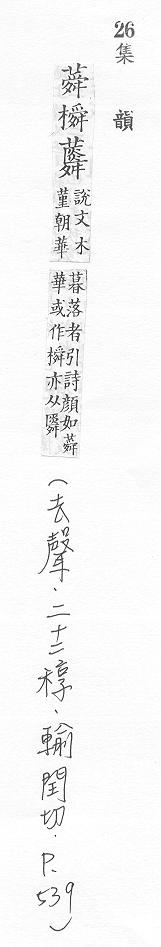 26 集韻
蕣橓
說文木
堇朝華
暮落者引詩顏如蕣
華或作橓亦从
(去聲．二十二稕．輸閏切．P.539)